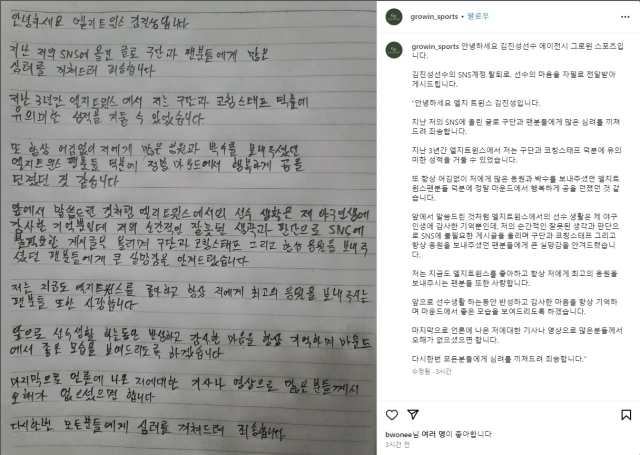 안녕하세요 엘지트윈스 김진성입니다
지난 저의 SNS에 올린 글로 구단과 팬분들에게 많은
심려를 끼쳐드려 죄송합니다
지난 3년간 엘지트윈스에서 저는 구단과 코칭스태프 덕분에
유의미한 성적을 거둘 수 있었습니다
또 항상 어김없이 저에게 많은 응원과 박수를 보내주셨던
엘지트윈스 팬분들 덕분에 정말 마운드에서 행복하게 공을
던졌던 것 같습니다
앞에서 말씀드린 것처럼 엘지트윈스에서의 선수 생활은 제 야구인생에
감사한 기억뿐인데 저의 순간적인 잘못된 생각과 판단으로 SNS에
불필요한 게시글을 올리며 구단과 코칭스태프 그리고 항상 응원을 보내주
셨던 팬분들에게 큰 실망감을 안겨드렸습니다
저는 지금도 엘지트윈스를 좋아하고 항상 저에게 최고의 응원을 보내주시는
팬분들 또한 사랑합니다
앞으로 선수생활 하는동안 반성하고 감사한 마음을 항상 기억하며 마운드
에서 좋은 모습을 보여드리도록 하겠습니다
마지막으로 언론에 나온 저에대한 기사나 영상으로 많은분들께서
오해가 없으셨으면 합니다
다시한번 모든분들에게 심려를 끼쳐드려 죄송합니다.
growin_sports • 팔로우
growin_sports 안녕하세요 김진성선수 에이전시 그로윈 스포츠입
니다.
김진성선수의 SNS계정 탈퇴로, 선수의 마음을 자필로 전달받아
게시드립니다.
"안녕하세요 엘지 트윈스 김진성입니다.
지난 저의 SNS에 올린 글로 구단과 팬분들에게 많은 심려를 끼쳐
드려 죄송합니다.
지난 3년간 엘지트윈스에서 저는 구단과 코칭스태프 덕분에 유의
미한 성적을 거둘 수 있었습니다.
또 항상 어김없이 저에게 많은 응원과 박수를 보내주셨던 엘지트윈
스팬분들 덕분에 정말 마운드에서 행복하게 공을 던졌던 것 같습니
다.
앞에서 말씀드린 것처럼 엘지트윈스에서의 선수 생활은 제 야구
인생에 감사한 기억뿐인데, 저의 순간적인 잘못된 생각과 판단으로
SNS에 불필요한 게시글을 올리며 구단과 코칭스태프 그리고
항상 응원을 보내주셨던 팬분들에게 큰 실망감을 안겨드렸습니다.
저는 지금도 엘지트윈스를 좋아하고 항상 저에게 최고의 응원을
보내주시는 팬분들 또한 사랑합니다.
앞으로 선수생활 하는동안 반성하고 감사한 마음을 항상 기억하
며 마운드에서 좋은 모습을 보여드리도록 하겠습니다.
마지막으로 언론에 나온 저에대한 기사나 영상으로 많은분들께서
오해가 없으셨으면 합니다.
다시한번 모든분들에게 심려를 끼쳐드려 죄송합니다."
수정됨 · 3시간
bwonee님 여러 명이 좋아합니다
3시간 전